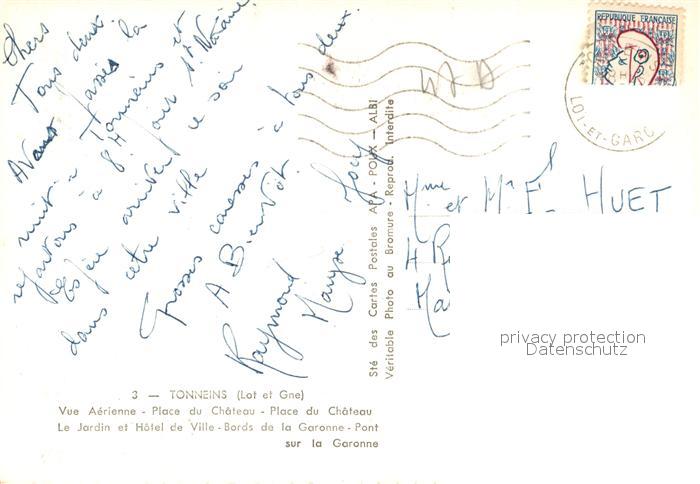 Chers
Tous deux
Avons passé la
nuit à Tonneins et
repartons à 8H pour St. Nazaire
espère arriver ce soir
dans cette ville
Grosses caresses à tous deux.
A Bientôt.
Raymond Maryse Josy
Sté des Cartes Postales APA - POUX — ALBI
Véritable Photo au Bromure - Reprod. Interdite
REPUBLIQUE FRANÇAISE
LOT-ET-GARO
Mme et Mr F. HUET
privacy protection
Datenschutz
3 — TONNEINS (Lot et Gne)
Vue Aérienne - Place du Château - Place du Château
Le Jardin et Hôtel de Ville - Bords de la Garonne - Pont
sur la Garonne